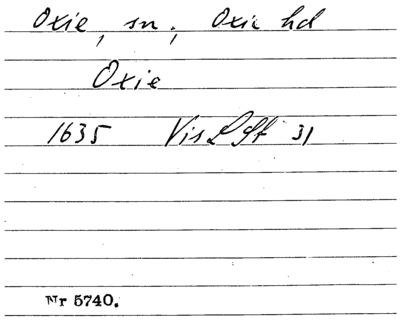 Oxie, sn; Oxie hd
Oxie
1635 Vis L St 31
Nr 5740.